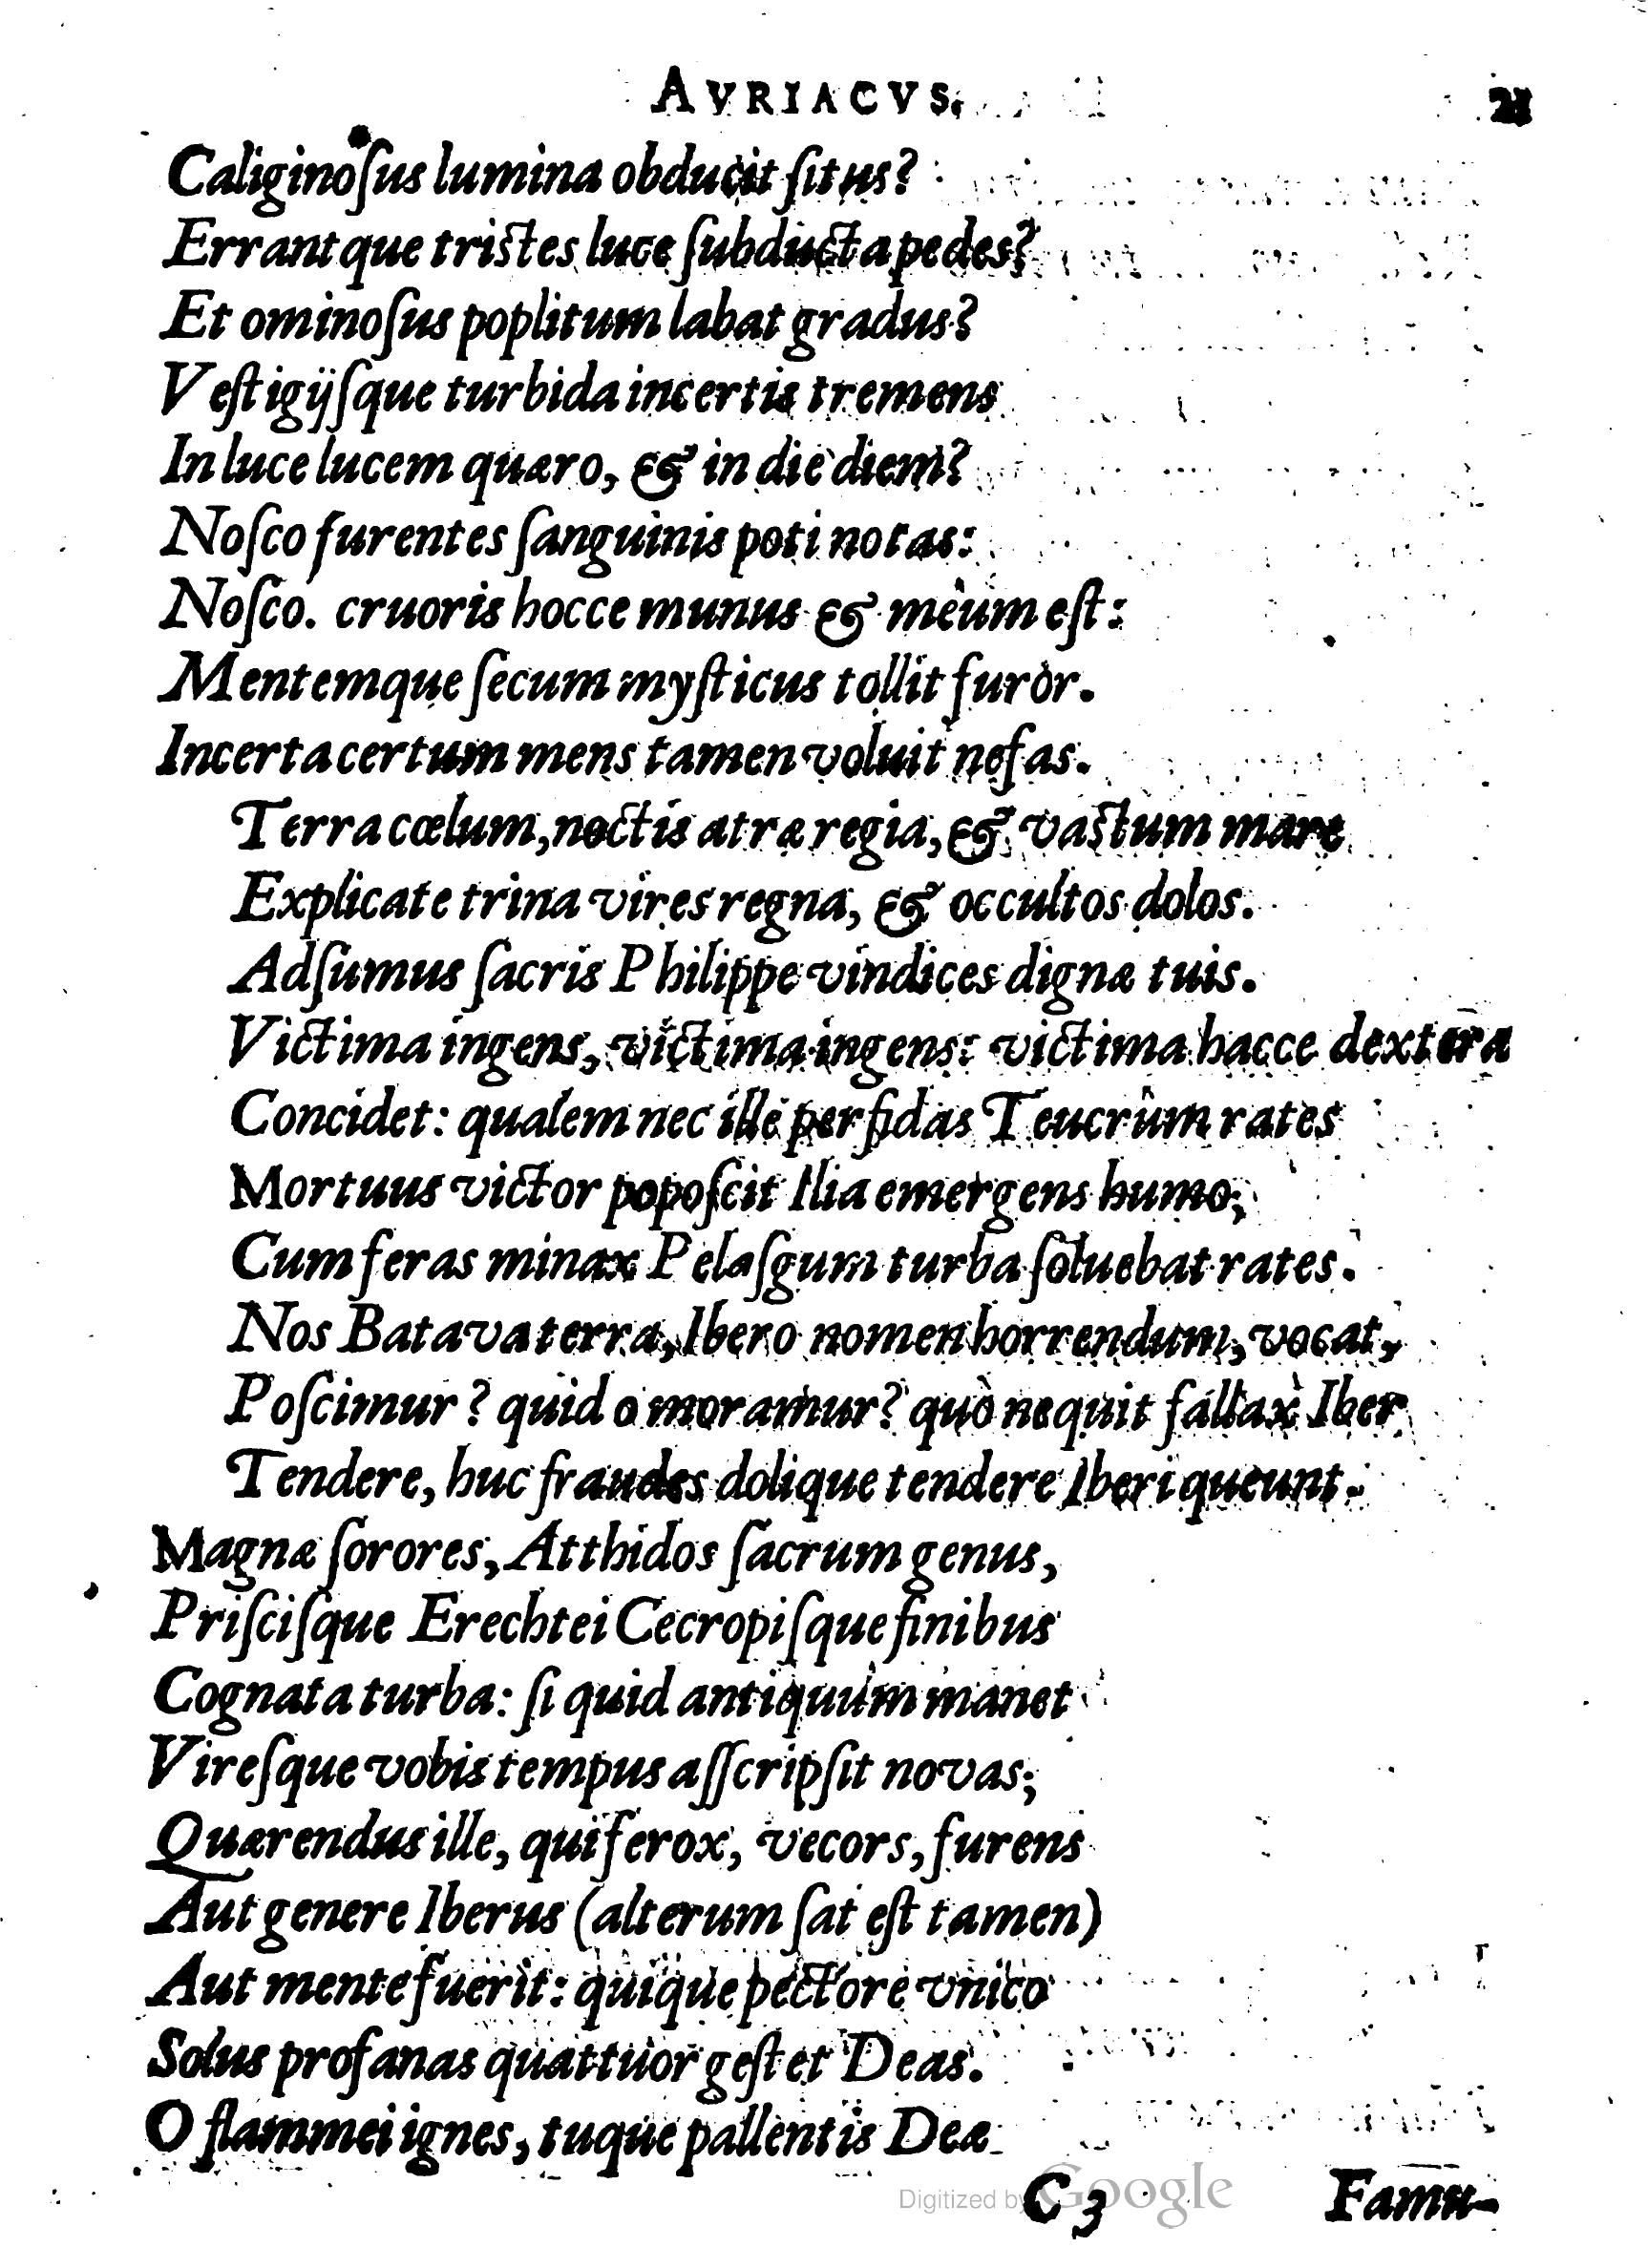 AVRIACVS. 21
Caliginoſus lumina obducit ſitus?
Errantque triſtes luce ſubducta pedes?
Et ominoſus poplitum labat gradus?
Veſtigijſque turbida incertis tremens
In luce lucem quæro, & in die diem?
Noſco furentes ſanguinis poti notas:
Noſco. cruoris hocce munus & meûm eſt:
Mentemque ſecum myſticus tollit furor.
Incerta certum mens tamen voluit nefas.
Terra cœlum, noctis atræ regia, & vaſtum mare
Explicate trina vires regna, & occultos dolos.
Adſumus ſacris Philippe vindices dignæ tuis.
Victima ingens, victima ingens: victima hacce dextera
Concidet: qualem nec ille perfidas Teucrûm rates
Mortuus victor popoſcit Ilia emergens humo;
Cum feras minax Pelaſgum turba ſoluebat rates.
Nos Batava terra, Ibero nomen horrendum, vocat,
Poſcimur? quid o moramur? quò nequit fallax Iber
Tendere, huc fraudes dolique tendere Iberi queunt.
Magnæ ſorores, Atthidos ſacrum genus,
Priſciſque Erechtei Cecropiſque finibus
Cognata turba: ſi quid antiquum manet
Vireſque vobis tempus aſſcripſit novas;
Quærendus ille, qui ferox, vecors, furens
Aut genere Iberus (alterum ſat eſt tamen)
Aut mente fuerit: quique pectore vnico
Solus profanas quattuor geſtet Deas.
O flammei ignes, tuque pallentis Deæ
C 3 Famu-
Digitized by Google